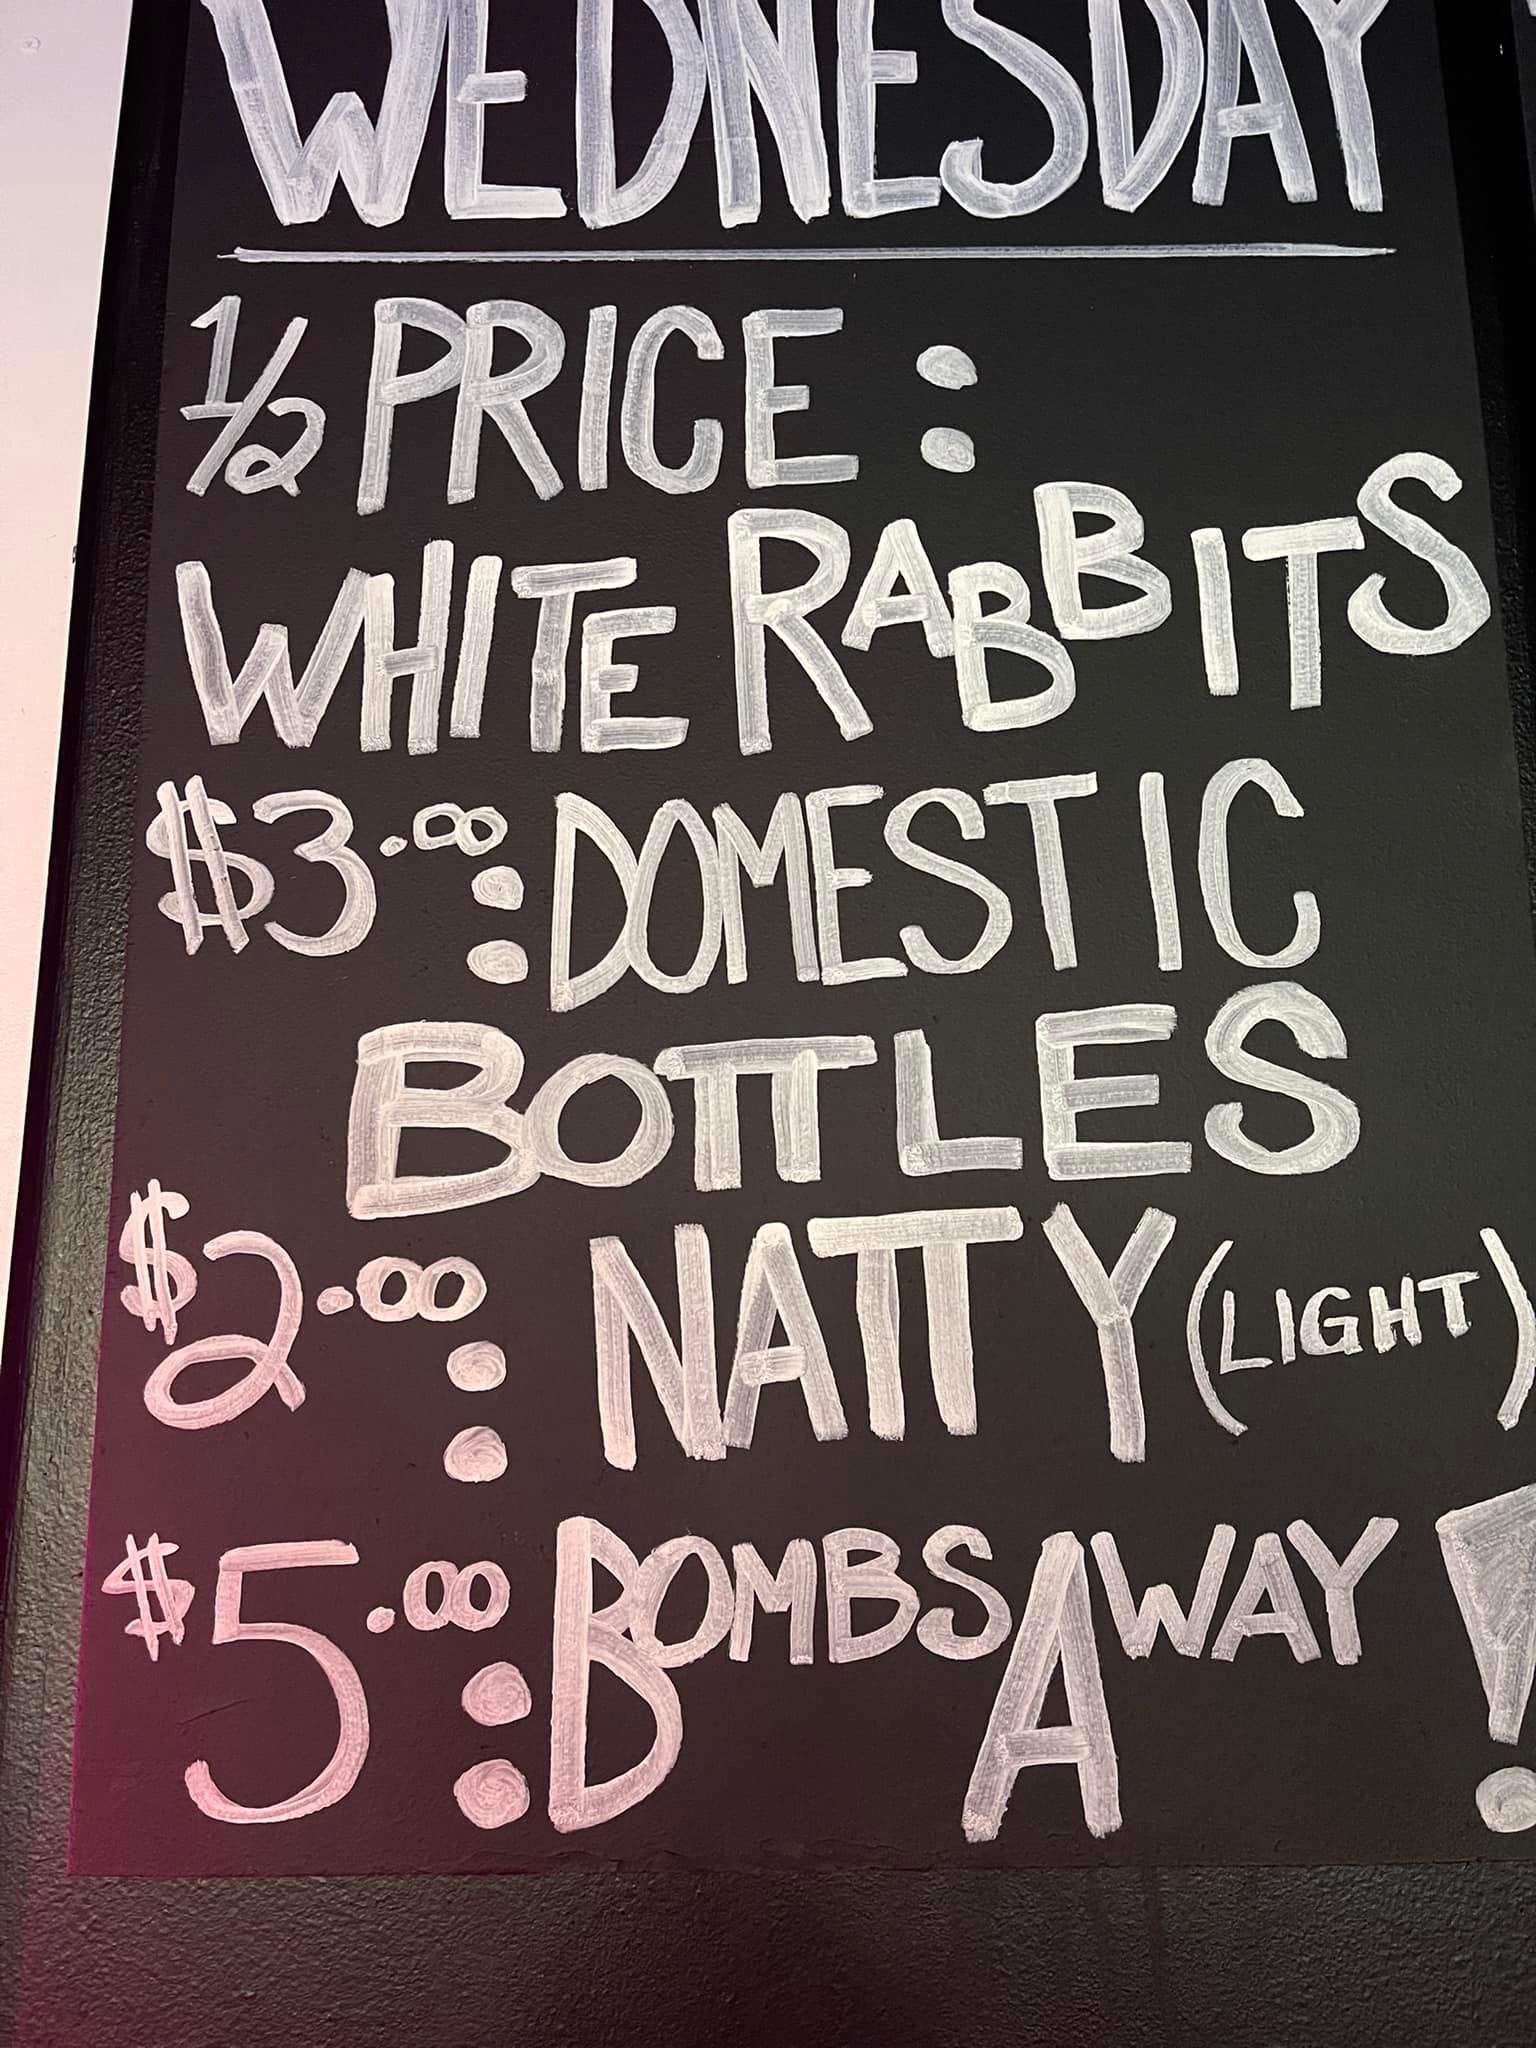 WEDNESDAY
1/2 PRICE:
WHITE RABBITS
$3.00: DOMESTIC
BOTTLES
$2.00: NATTY (LIGHT)
$5.00: BOMBS AWAY!